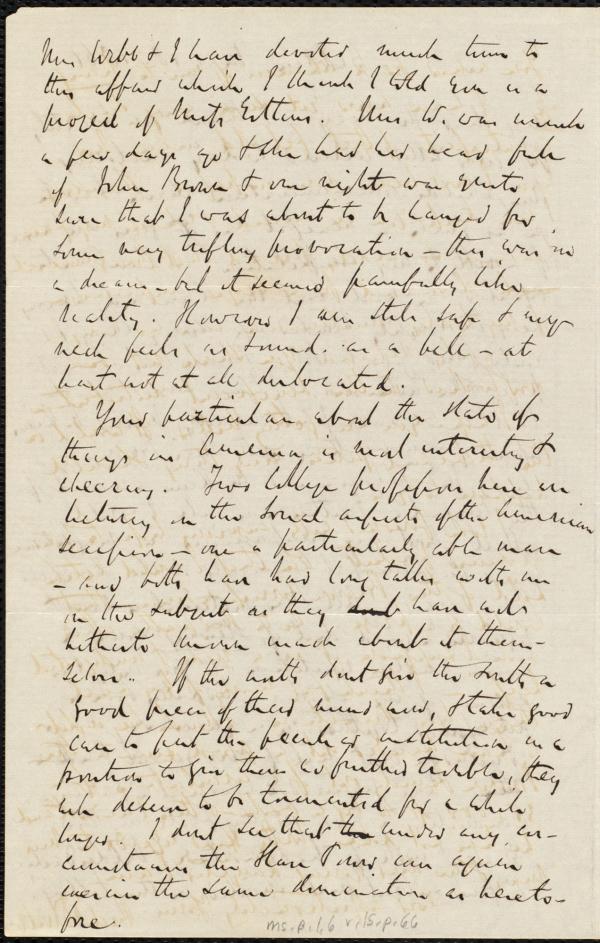 Mrs Webb & I have devoted much time to
this affair which I think I told you is a
project of Miss Estlins. Mrs W. was unwell
a few days ago & she had her head full
of John Brown & one night was quite
sure that I was about to be hanged for
some very trifling provocation – this was in
a dream – but it seemed painfully like
reality. However I am still safe & my
neck feels as sound as a bell – at
least not at all dislocated.
Your particulars about the state of
things in America is most interesting &
cheering. Two College professors here are
lecturing on the social aspects of the American
secession – one a particularly able man
– and both have had long talks with me
on the subject as they have not
hitherto known much about it them-
selves. If the north dont give the South a
good piece of their mind now, & take good
care to put the peculiar institution in a
position to give them no further trouble, they
will deserve to be tormented for a while
longer. I dont see that under any cir-
cumstances the Slave Power can again
exercise the same domination as hereto-
fore.
ms.B.1.6 v.15.p.66